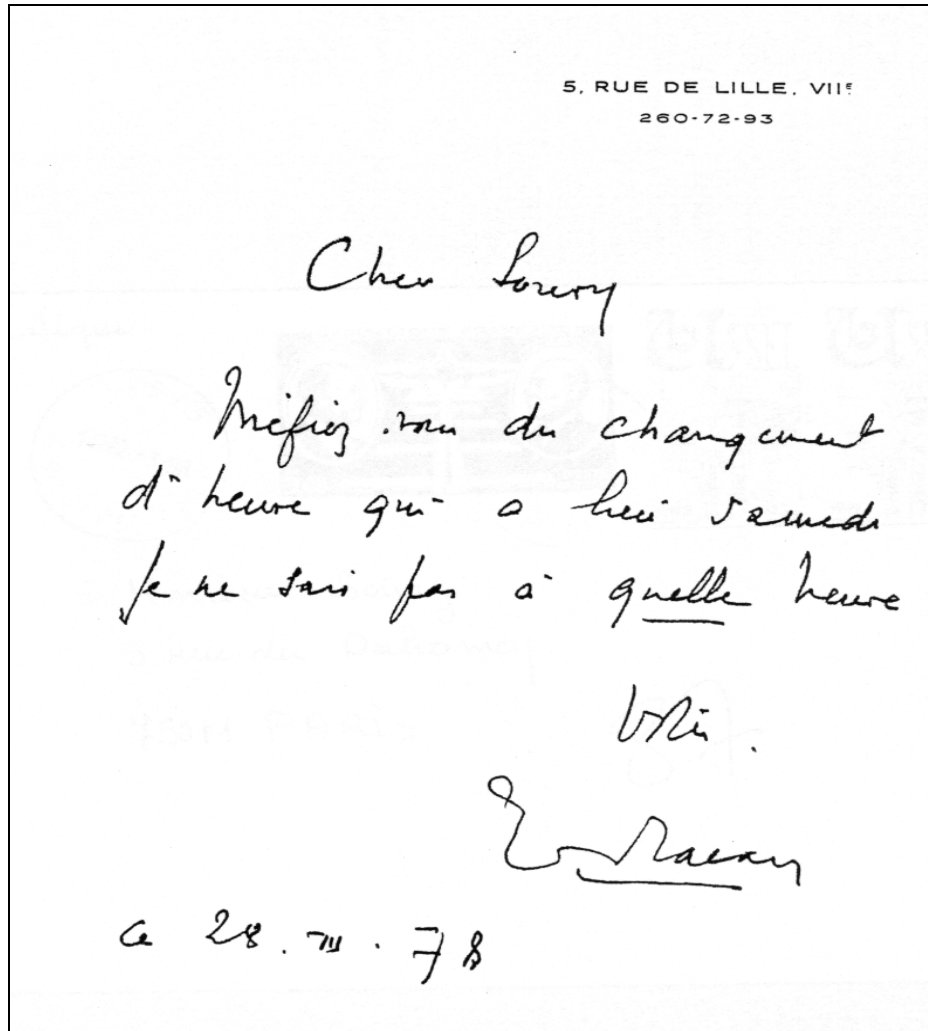 5, RUE DE LILLE. VIIᴱ
260-72-93
Cher Soury
Méfiez-vous du changement
d'heure qui a lieu samedi
Je ne sais pas à quelle heure
Votre.
Lacan
ce 28. III. 78